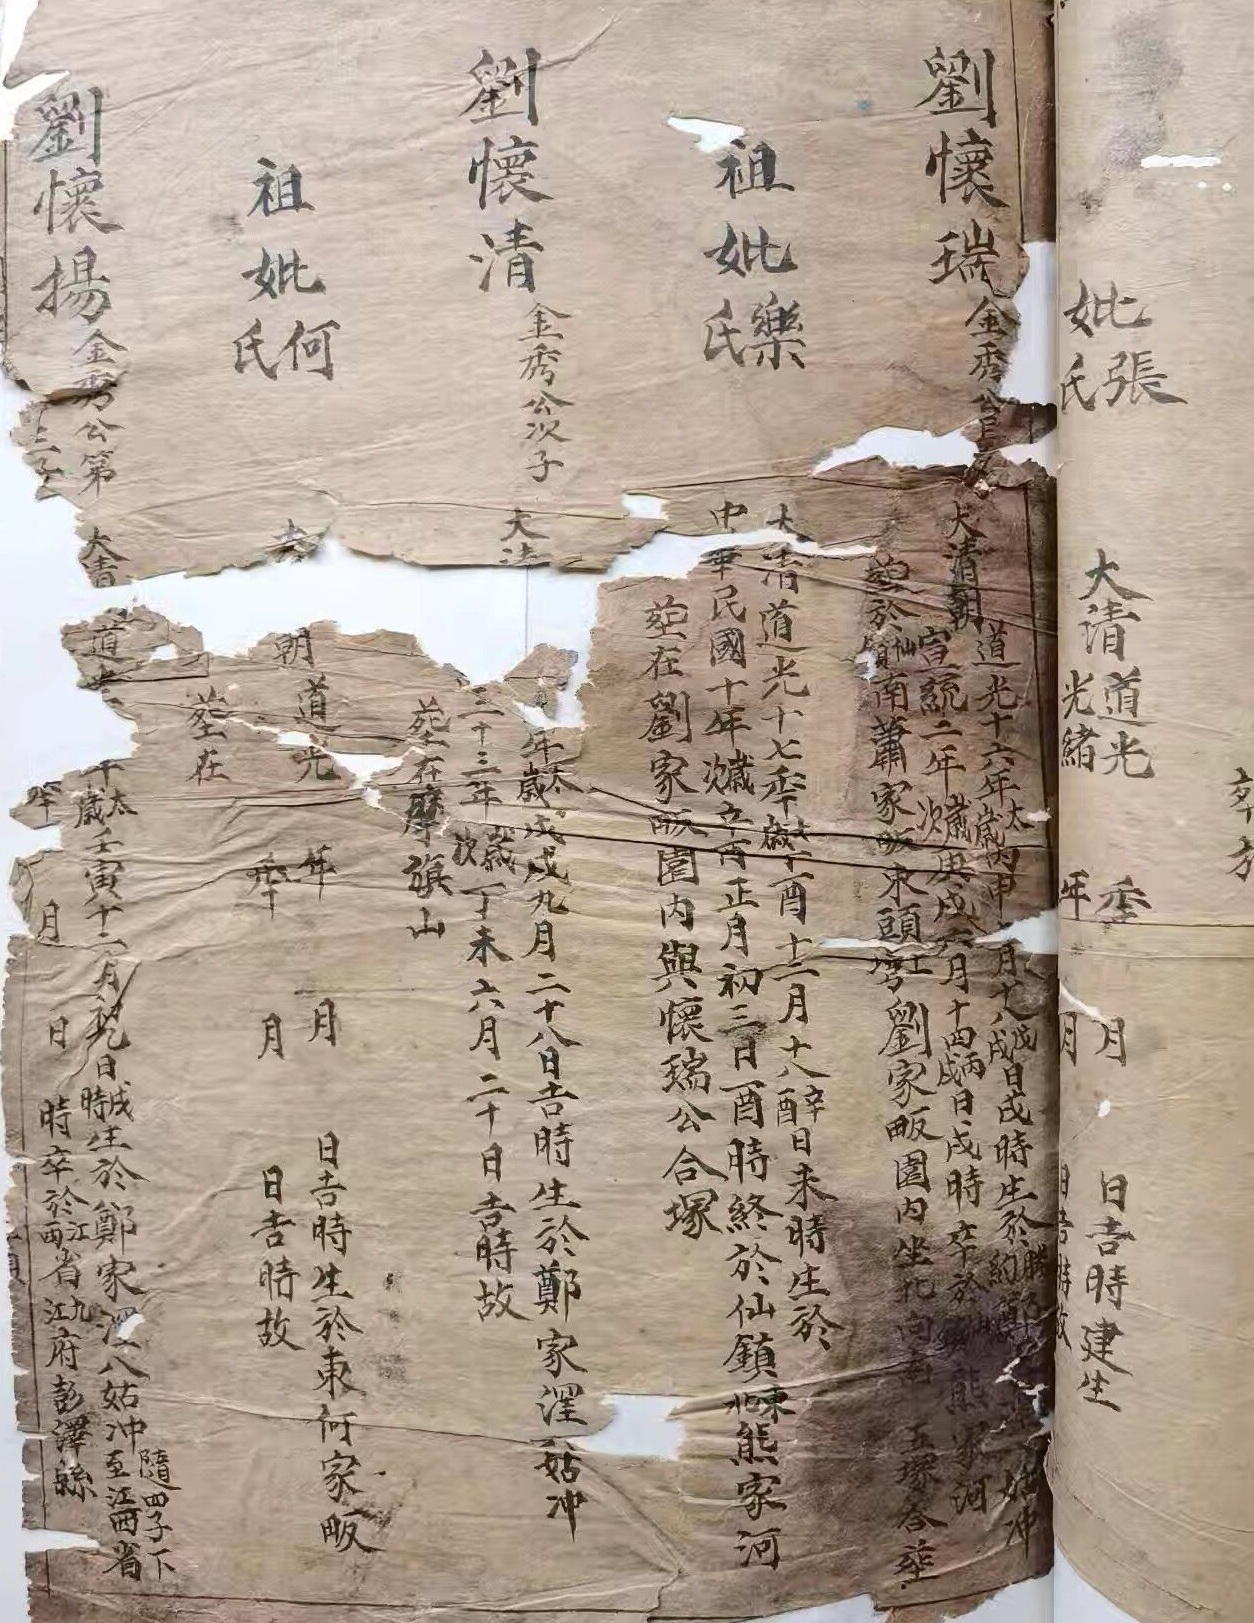 卒
妣張氏
大清道光 年 月 日吉時建生
光緒 年 月 日吉時故
劉懷瑞金秀公長
大清朝道光十六年太歲丙申 月十八戊戌日戌時生於
宣統二年歲次庚戌六月十四丙戌日戌時卒於 熊家河
塟於仙鎮南蕭家畈東頭 劉家畈園內坐北向南 五塚合塟
祖妣樂氏
大清道光十七年太歲丁酉十二月十八辛酉日未時生於
中華民國十年歲次辛酉正月初三日酉時終於仙鎮東北熊家河
塟在劉家畈園內與懷瑞公合塚
劉懷清金秀公次子
大清 年太歲戊戌九月二十八日吉時生於鄭家 姑冲
三十三年歲次丁未六月二十日吉時故
塟在 旗山
祖妣何氏
大 朝道光 年 月 日吉時生於東何家畈
年 月 日吉時故
塟在
劉懷揚金秀公第三子
大清道光 太歲壬寅十二月初九日戌時生於鄭家 八姑冲隨四子下至江西省
年 月 日 時卒於江西省九江府彭澤縣